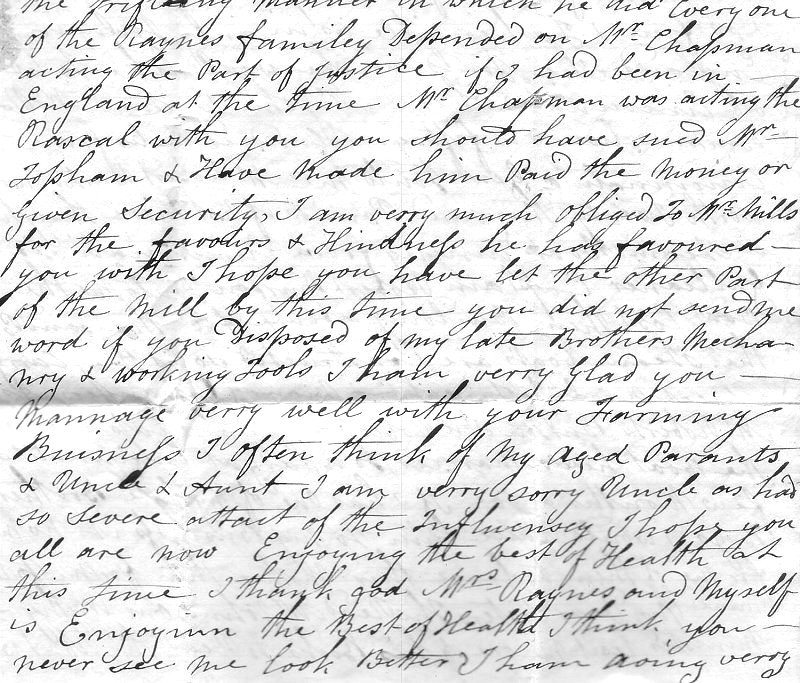 the trifleing manner in which he did Every one
of the Raynes familey Depended on Mr. Chapman
acting the Part of Justice if I had been in
England at the time Mr Chapman was acting the
Rascal with you you should have sued Mr.
Topham & Have made him Paid the money or
given Security, I am verry much obliged To Mr. Mills
for the favours & Kindness he has favoured —
you with I hope you have let the other Part
of the mill by this time you did not send me
word if you Disposed of my late Brothers Mecha-
nry & working Tools I ham verry Glad you —
Mannage verry well with your Farming
Buisness I often think of my aged Parants
& Uncle & Aunt I am verry sorry Uncle as had
so severe attact of the Influensey I hope you
all are now Enjoying the best of Health at
this time I thank god Mrs. Raynes and Myself
is Enjoyinn the Best of Health I think you —
never see me look Better I ham doing verry